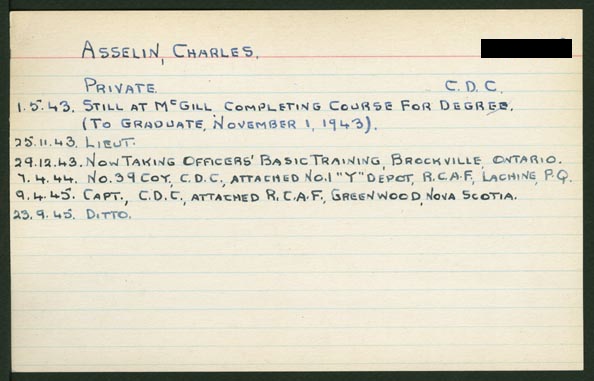 ASSELIN, CHARLES.
PRIVATE. C.D.C.
1.5.43. STILL AT McGILL COMPLETING COURSE FOR DEGREE.
(TO GRADUATE, NOVEMBER 1, 1943).
25.11.43. LIEUT.
29.12.43. NOW TAKING OFFICERS' BASIC TRAINING, BROCKVILLE, ONTARIO.
7.4.44. NO. 39 COY, C.D.C., ATTACHED NO.1 "Y" DEPOT, R.C.A.F., LACHINE, P.Q.
9.4.45. CAPT., C.D.C., ATTACHED R.C.A.F., GREENWOOD, NOVA SCOTIA.
23.9.45. DITTO.